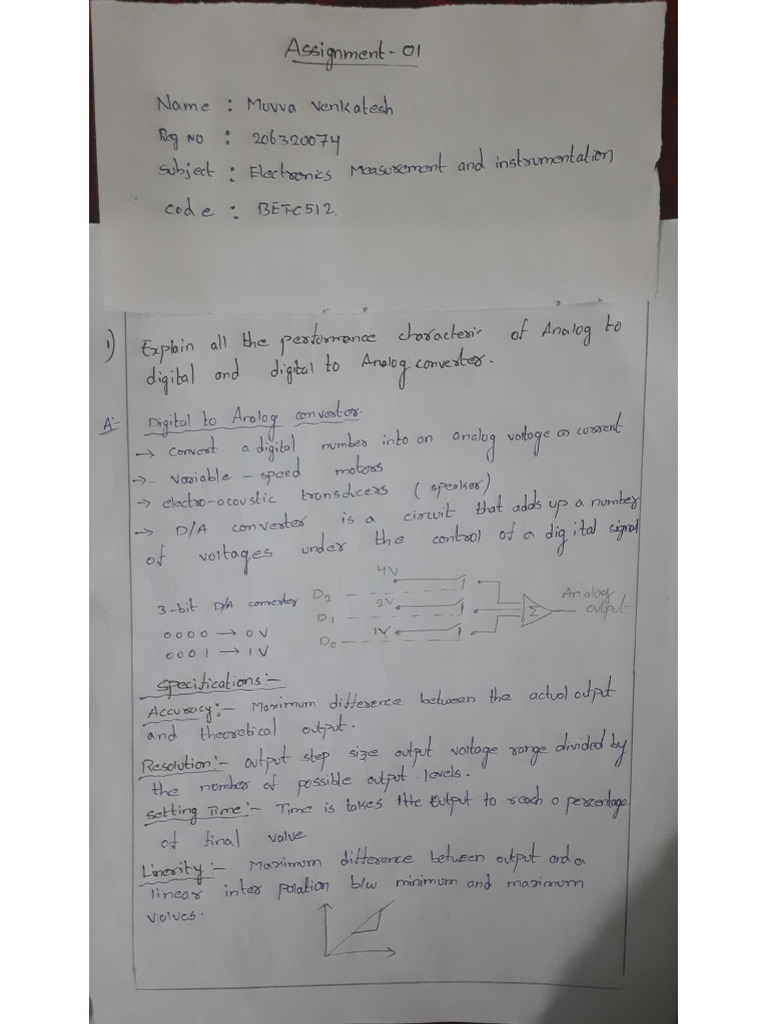 Assignment - 01
Name : Muvva Venkatesh
Reg No : 206320074
Subject : Electronics Measurement and instrumentation
code : BETC512.
1) Explain all the performance characteris of Analog to
digital and digital to Analog converter.
A:- Digital to Analog converter.
→ convert a digital number into an analog voltage or current
→ - variable - speed motors
→ electro-acoustic transducers (speaker)
→ D/A converter is a circuit that adds up a number
of voltages under the control of a digital signal
3-bit D/A converter
0000 → 0V
0001 → 1V
D2 4V
D1 2V
D0 1V
Σ
Analog
output
Specifications:-
Accuracy:- Maximum difference between the actual output
and theoretical output.
Resolution:- output step size output voltage range divided by
the number of possible output levels.
Setting Time:- Time is takes the output to reach a percentage
of final value
Linerity:- Maximum difference between output and a
linear inter polation b/w minimum and maximum
values.